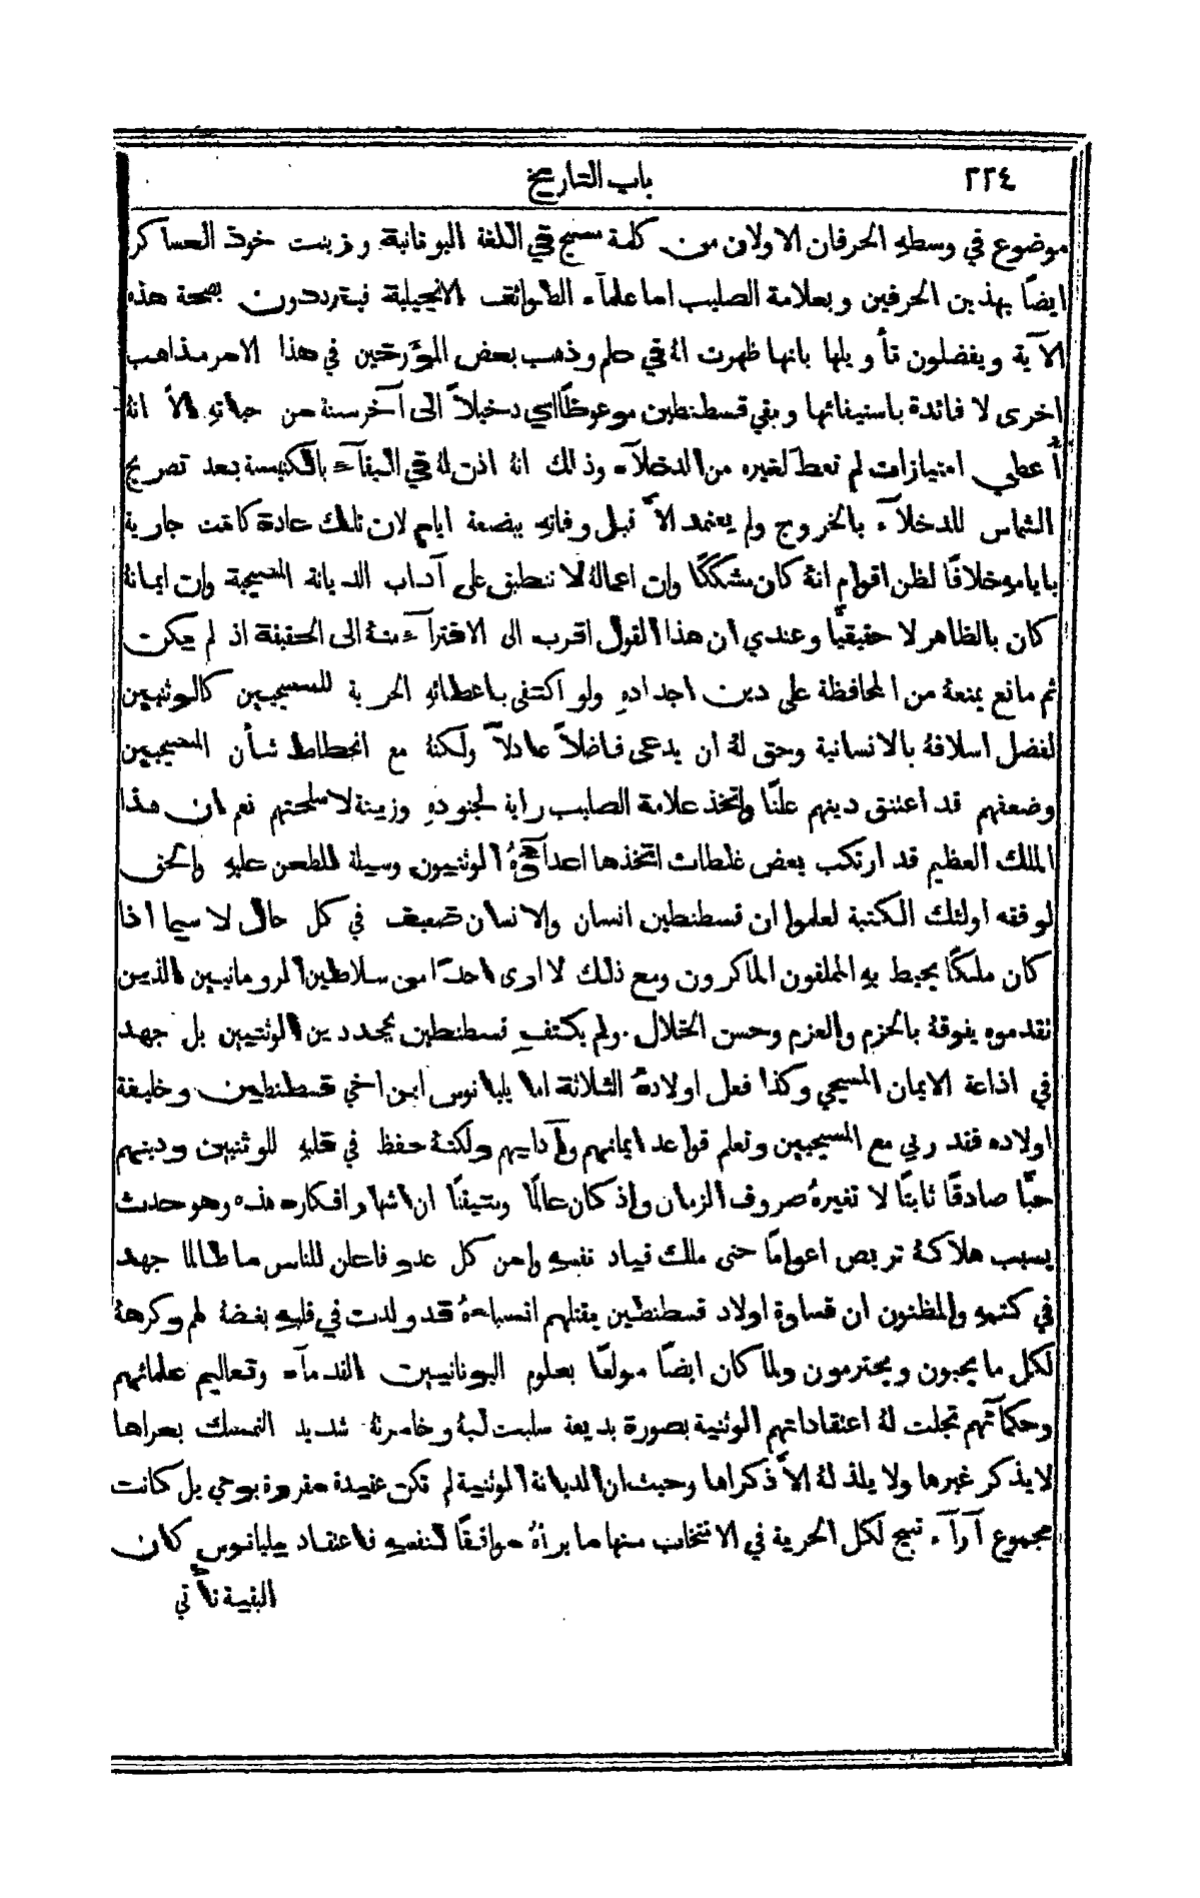 ٢٢٤
باب التاريخ
موضوع في وسطهِ الحرفان الاولان من كلمة مسيح في اللغة اليونانية وزينت خوذ العساكر
ايضًا بهذين الحرفين وبعلامة الصليب اما علمآء الطوائف الانجيلية فيترددون بصحة هذه
الآية ويفضلون تأويلها بانها ظهرت لهُ في حلم وذهب بعض المؤرخين في هذا الامر مذاهب
اخرى لا فائدة باستيفائها وبقي قسطنطين موعوظًا اي دخيلاً الى آخر سنة من حياتهِ الاّ انهُ
أُعطي امتيازات لم تعطَ لغيره من الدخلآء وذلك انهُ اذن لهُ في البقآء بالكنيسة بعد تصريح
الشماس للدخلآء بالخروج ولم يعتمد الاّ قبل وفاتهِ ببضعة ايام لان تلك عادة كانت جارية
بايامهِ خلافًا لظن اقوام انهُ كان مشككًا وان اعمالهُ لا تنطبق على آداب الديانة المسيحية وان ايمانهُ
كان بالظاهر لا حقيقيًّا وعندي ان هذا القول اقرب الى الافترآء منهُ الى الحقيقة اذ لم يكن
ثم مانع يمنعهُ من المحافظة على دين اجدادهِ ولو اكتفى باعطائهِ الحرية للمسيحيين كالوثنيين
لفضل اسلافهُ بالانسانية وحق لهُ ان يدعى فاضلاً عادلاً ولكنهُ مع انحطاط شأن المسيحيين
وضعفهم قد اعتنق دينهم علنًا واتخذ علامة الصليب راية لجنودهِ وزينة لاسلحتهم نعم ان هذا
الملك العظيم قد ارتكب بعض غلطات اتخذها اعدآؤهُ الوثنيون وسيلة للطعن عليهِ والحق
لو فقه اولئك الكتبة لعلموا ان قسطنطين انسان والانسان ضعيف في كل حال لا سيما اذا
كان ملكًا يحيط بهِ الملقون الماكرون ومع ذلك لا ارى احدًا من سلاطين الرومانيين الذين
تقدموه يفوقهُ بالحزم والعزم وحسن الخلال. ولم يكتفِ قسطنطين بجحد دين الوثنيين بل جهد
في اذاعة الايمان المسيحي وكذا فعل اولادهُ الثلاثة اما يليانوس ابن اخي قسطنطين وخليفة
اولاده فقد ربي مع المسيحيين وتعلم قواعد ايمانهم وآدابهم ولكنهُ حفظ في قلبهِ للوثنيين ودينهم
حبًّا صادقًا ثابتًا لا تغيرهُ صروف الزمان واذ كان عالمًا ومتيقنًا ان اشهار افكاره هذه وهو حدث
يسبب هلاكهُ تربص اعوامًا حتى ملك قياد نفسهِ وامن كل عدو فاعلن للناس ما طالما جهد
في كتمهِ والمظنون ان قساوة اولاد قسطنطين بقتلهم انسباءهُ قد ولدت في قلبهِ بغضة لهم وكرهة
لكل ما يحبون ويحترمون ولما كان ايضًا مولعًا بعلوم اليونانيين القدمآء وتعاليم علمائهم
وحكمآئهم تجلت لهُ اعتقاداتهم الوثنية بصورة بديعة سلبت لبهُ وغادرتهُ شديد التمسك بعراها
لا يذكر غيرها ولا يلذ لهُ الاّ ذكراها وحيث ان الديانة الوثنية لم تكن عقيدة مقررة بوحي بل كانت
مجموع آرآء تبيح لكل الحرية في الانتخاب منها ما يراهُ موافقًا لنفسهِ فاعتقاد يليانوس كان
البقية تأتي